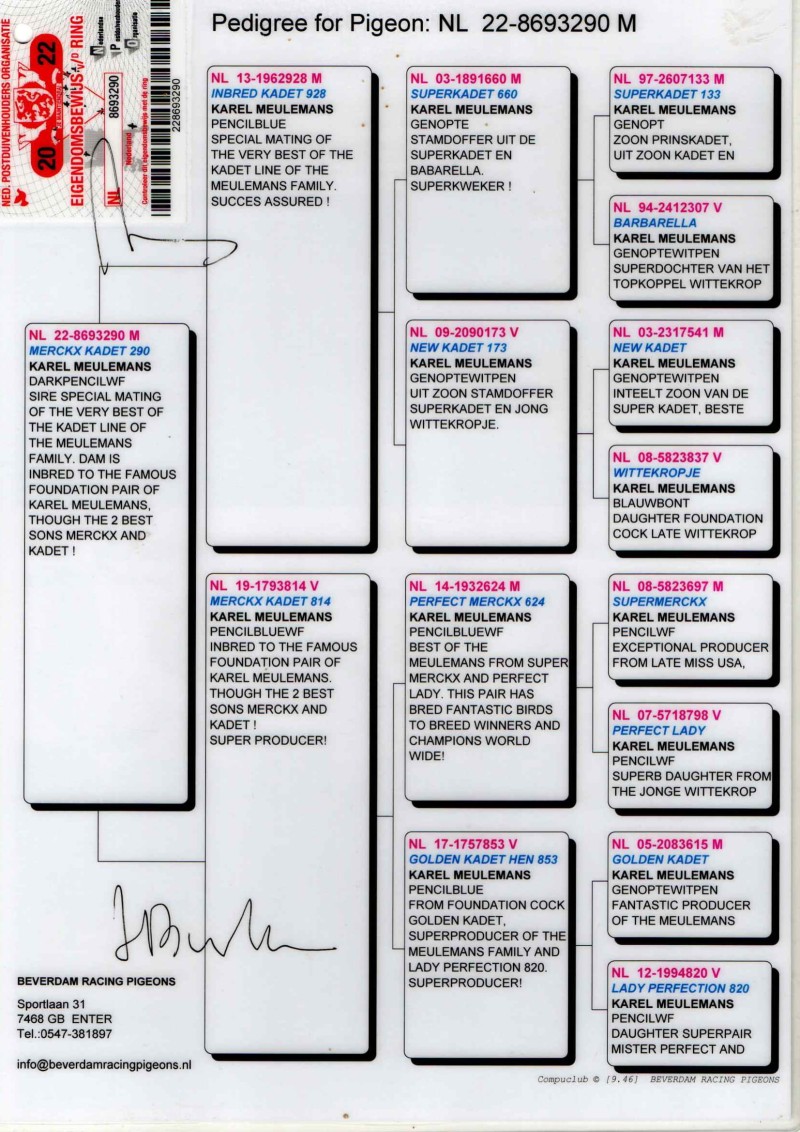 Pedigree for Pigeon: NL 22-8693290 M
NED. POSTDUIVENHOUDERS ORGANISATIE
20 22
EIGENDOMSBEWIJS V/D RING
Nederlandse
Postduivenhouders
Organisatie
NL
8693290
Nederland
Controleer dit eigendomsbewijs met de ring
228693290
NL 22-8693290 M
MERCKX KADET 290
KAREL MEULEMANS
DARKPENCILWF
SIRE SPECIAL MATING
OF THE VERY BEST OF
THE KADET LINE OF
THE MEULEMANS
FAMILY. DAM IS
INBRED TO THE FAMOUS
FOUNDATION PAIR OF
KAREL MEULEMANS,
THOUGH THE 2 BEST
SONS MERCKX AND
KADET !
NL 13-1962928 M
INBRED KADET 928
KAREL MEULEMANS
PENCILBLUE
SPECIAL MATING OF
THE VERY BEST OF THE
KADET LINE OF THE
MEULEMANS FAMILY.
SUCCES ASSURED !
NL 19-1793814 V
MERCKX KADET 814
KAREL MEULEMANS
PENCILBLUEWF
INBRED TO THE FAMOUS
FOUNDATION PAIR OF
KAREL MEULEMANS.
THOUGH THE 2 BEST
SONS MERCKX AND
KADET !
SUPER PRODUCER!
NL 03-1891660 M
SUPERKADET 660
KAREL MEULEMANS
GENOPTE
STAMDOFFER UIT DE
SUPERKADET EN
BABARELLA.
SUPERKWEKER !
NL 09-2090173 V
NEW KADET 173
KAREL MEULEMANS
GENOPTEWITPEN
UIT ZOON STAMDOFFER
SUPERKADET EN JONG
WITTEKROPJE.
NL 14-1932624 M
PERFECT MERCKX 624
KAREL MEULEMANS
PENCILBLUEWF
BEST OF THE
MEULEMANS FROM SUPER
MERCKX AND PERFECT
LADY. THIS PAIR HAS
BRED FANTASTIC BIRDS
TO BREED WINNERS AND
CHAMPIONS WORLD
WIDE!
NL 17-1757853 V
GOLDEN KADET HEN 853
KAREL MEULEMANS
PENCILBLUE
FROM FOUNDATION COCK
GOLDEN KADET,
SUPERPRODUCER OF THE
MEULEMANS FAMILY AND
LADY PERFECTION 820.
SUPERPRODUCER!
NL 97-2607133 M
SUPERKADET 133
KAREL MEULEMANS
GENOPT
ZOON PRINSKADET,
UIT ZOON KADET EN
NL 94-2412307 V
BARBARELLA
KAREL MEULEMANS
GENOPTEWITPEN
SUPERDOCHTER VAN HET
TOPKOPPEL WITTEKROP
NL 03-2317541 M
NEW KADET
KAREL MEULEMANS
GENOPTEWITPEN
INTEELT ZOON VAN DE
SUPER KADET, BESTE
NL 08-5823837 V
WITTEKROPJE
KAREL MEULEMANS
BLAUWBONT
DAUGHTER FOUNDATION
COCK LATE WITTEKROP
NL 08-5823697 M
SUPERMERCKX
KAREL MEULEMANS
PENCILWF
EXCEPTIONAL PRODUCER
FROM LATE MISS USA,
NL 07-5718798 V
PERFECT LADY
KAREL MEULEMANS
PENCILWF
SUPERB DAUGHTER FROM
THE JONGE WITTEKROP
NL 05-2083615 M
GOLDEN KADET
KAREL MEULEMANS
GENOPTEWITPEN
FANTASTIC PRODUCER
OF THE MEULEMANS
NL 12-1994820 V
LADY PERFECTION 820
KAREL MEULEMANS
PENCILWF
DAUGHTER SUPERPAIR
MISTER PERFECT AND
BEVERDAM RACING PIGEONS
Sportlaan 31
7468 GB ENTER
Tel.:0547-381897
info@beverdamracingpigeons.nl
Compuclub © [9.46] BEVERDAM RACING PIGEONS